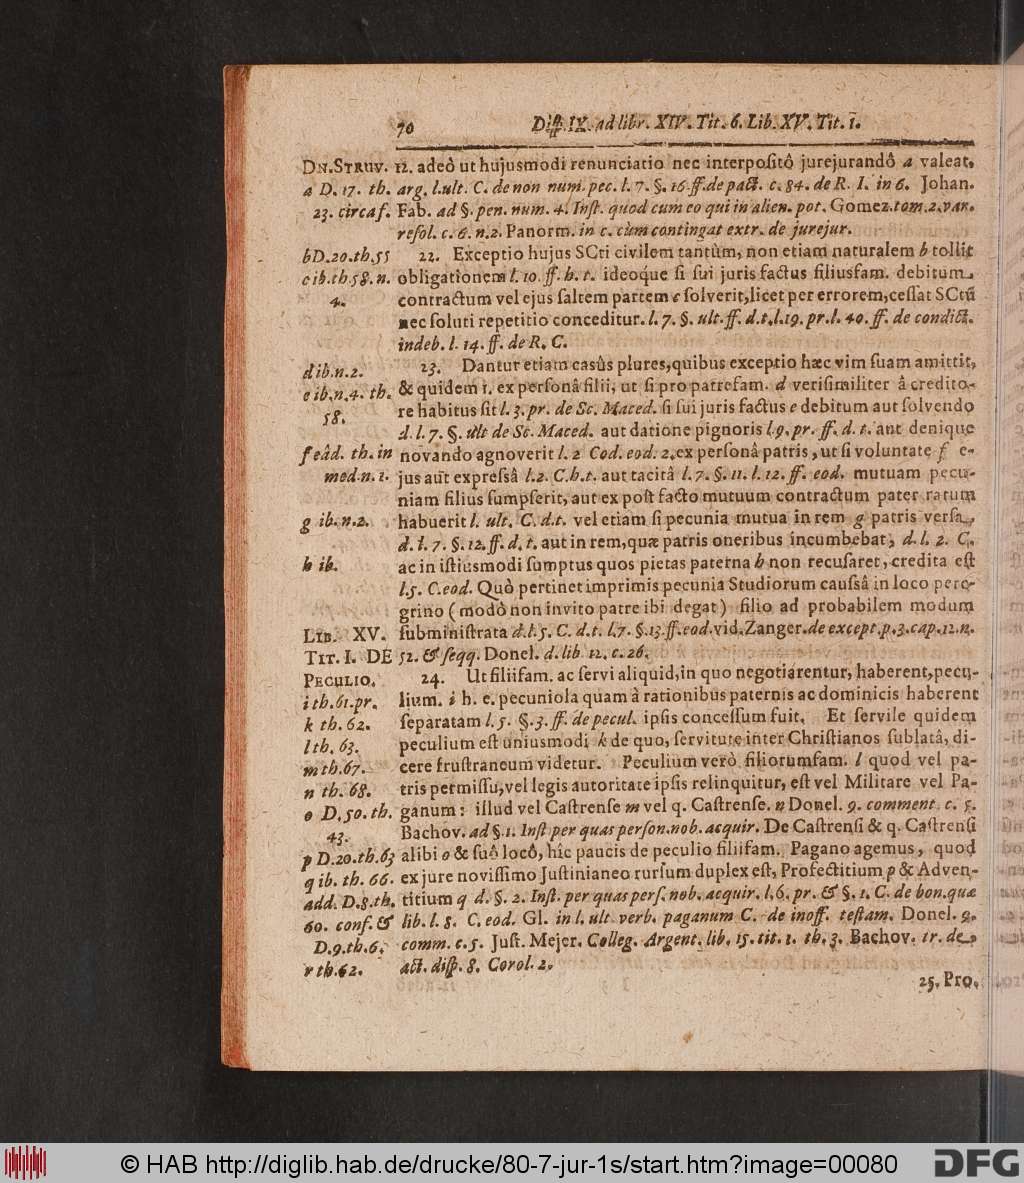 70 Diſſ. IX. ad libr. XIV. Tit. 6. Lib. XV. Tit. 1.
DN. STRUV. 12. adeô ut hujusmodi renunciatio nec interpoſitô jurejurandô a valeat,
a D. 17. th. arg. l. ult. C. de non num. pec. l. 7. §. 16. ff. de pact. c. 84. de R. I. in 6. Johan.
23. circa f. Fab. ad §. pen. num. 4. Inſt. quod cum eo qui in alien. pot. Gomez. tom. 2. var.
reſol. c. 6. n. 2. Panorm. in c. cùm contingat extr. de jurejur.
b D. 20. th. 55 22. Exceptio hujus SCti civilem tantùm, non etiam naturalem b tollit
c ib. th 58. n. obligationem l. 10. ff. h. t. ideoque ſi ſui juris factus filiusfam. debitum
4. contractum vel ejus ſaltem partem c ſolverit, licet per errorem, ceſſat SCtũ
nec ſoluti repetitio conceditur. l. 7. §. ult. ff. d. t. l. 19. pr. l. 40. ff. de condict.
indeb. l. 14. ff. de R. C.
d ib. n. 2. 23. Dantur etiam casûs plures, quibus exceptio hæc vim ſuam amittit,
e ib. n. 4. th. & quidem 1. ex perſonâ filii, ut ſi pro patrefam. d veriſimiliter â credito-
58. re habitus ſit l. 3. pr. de Sc. Maced. ſi ſui juris factus e debitum aut ſolvendo
d. l. 7. §. ult de Sc. Maced. aut datione pignoris l. 9. pr. ff. d. t. aut denique
f eâd. th. in novando agnoverit l. 2 Cod. eod. 2. ex perſonâ patris, ut ſi voluntate f e-
med. n. 1. jus aut expreſsâ l. 2. C. h. t. aut tacitâ l. 7. §. 11. l. 12. ff. eod. mutuam pecu-
niam filius ſumpſerit, aut ex poſt facto mutuum contractum pater ratum
g ib. n. 2. habuerit l. ult. C. d. t. vel etiam ſi pecunia mutua in rem g patris verſa,
d. l. 7. §. 12. ff. d. t. aut in rem, quæ patris oneribus incumbebat, d. l. 2. C.
h ib. ac in iſtiusmodi ſumptus quos pietas paterna h non recuſaret, credita eſt
l. 5. C. eod. Quò pertinet imprimis pecunia Studiorum cauſsâ in loco pere-
grino (modò non invito patre ibi degat) filio ad probabilem modum
LIB. XV. ſubminiſtrata d. l. 5. C. d. t. l. 7. §. 13. ff. eod. vid. Zanger. de except. p. 3. cap. 12. n.
TIT. I. DE 52. & ſeqq. Donel. d. lib 12. c. 26.
PECULIO. 24. Ut filiifam. ac ſervi aliquid, in quo negotiarentur, haberent, pecu-
i th. 61. pr. lium. i h. e. pecuniola quam à rationibus paternis ac dominicis haberent
k th. 62. ſeparatam l. 5. §. 3. ff. de pecul. ipſis conceſſum fuit. Et ſervile quidem
l th. 63. peculium eſt uniusmodi k de quo, ſervitute inter Chriſtianos ſublatâ, di-
m th. 67. cere fruſtraneum videtur. Peculium verò filiorumfam. l quod vel pa-
n th. 68. tris permiſſu, vel legis autoritate ipſis relinquitur, eſt vel Militare vel Pa-
o D. 50. th. ganum: illud vel Caſtrenſe m vel q. Caſtrenſe. n Donel. 9. comment. c. 5.
43. Bachov. ad §. 1. Inſt per quas perſon. nob. acquir. De Caſtrenſi & q. Caſtrenſi
p D. 20. th. 63 alibi o & ſuô locô, hîc paucis de peculio filiifam. Pagano agemus, quod
q ib. th. 66. ex jure noviſſimo Juſtinianeo rurſum duplex eſt, Profectitium p & Adven-
add. D. 8. th. titium q d. §. 2. Inſt. per quas perſ. nob. acquir. l. 6. pr. & §. 1. C. de bon. quæ
60. conf. & lib. l. 8. C. eod. Gl. in l. ult. verb. paganum C. de inoff. teſtam. Donel. 9.
D. 9. th. 6. comm. c. 5. Juſt. Mejer. Colleg. Argent. lib. 15. tit. 1. th. 3. Bachov. tr. de
r th. 62. act. diſp. 8. Corol. 2.
25. Pro.
© HAB http://diglib.hab.de/drucke/80-7-jur-1s/start.htm?image=00080 DFG